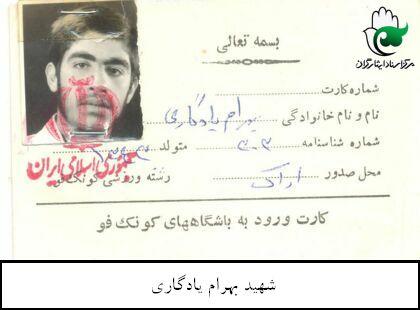 بسمه تعالی
مرکز اسناد ایثارگران
شماره کارت
نام و نام خانوادگی بهرام یادگاری
شماره شناسنامه ۳۰۳ متولد
محل صدور اراک رشته ورزشی کونگ فو
جمهوری اسلامی ایران
کارت ورود به باشگاههای کونگ فو
شهید بهرام یادگاری